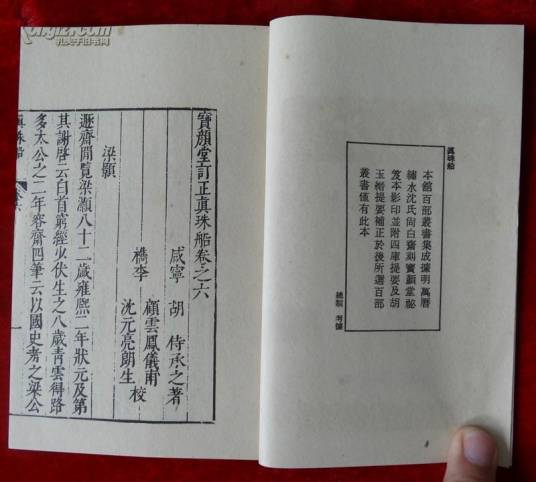 眞珠船
本館百部叢書集成據明萬曆
繡水沈氏尚白齋刻寶顏堂秘
笈本影印並附四庫提要及胡
玉縉提要補正於後所選百部
叢書僅有此本
總類 考據
寶顏堂訂正真珠船卷之六
咸寧 胡 侍承之著
顧雲鳳儀甫
檇李 校
沈元亮朗生
梁顥
遯齋閒覽梁灝八十二歲雍熙二年狀元及第
其謝啓云白首窮經少伏生之八歲青雲得路
多太公之二年容齋四筆云以國史考之梁公
真珠船 卷六
孔夫子旧书网